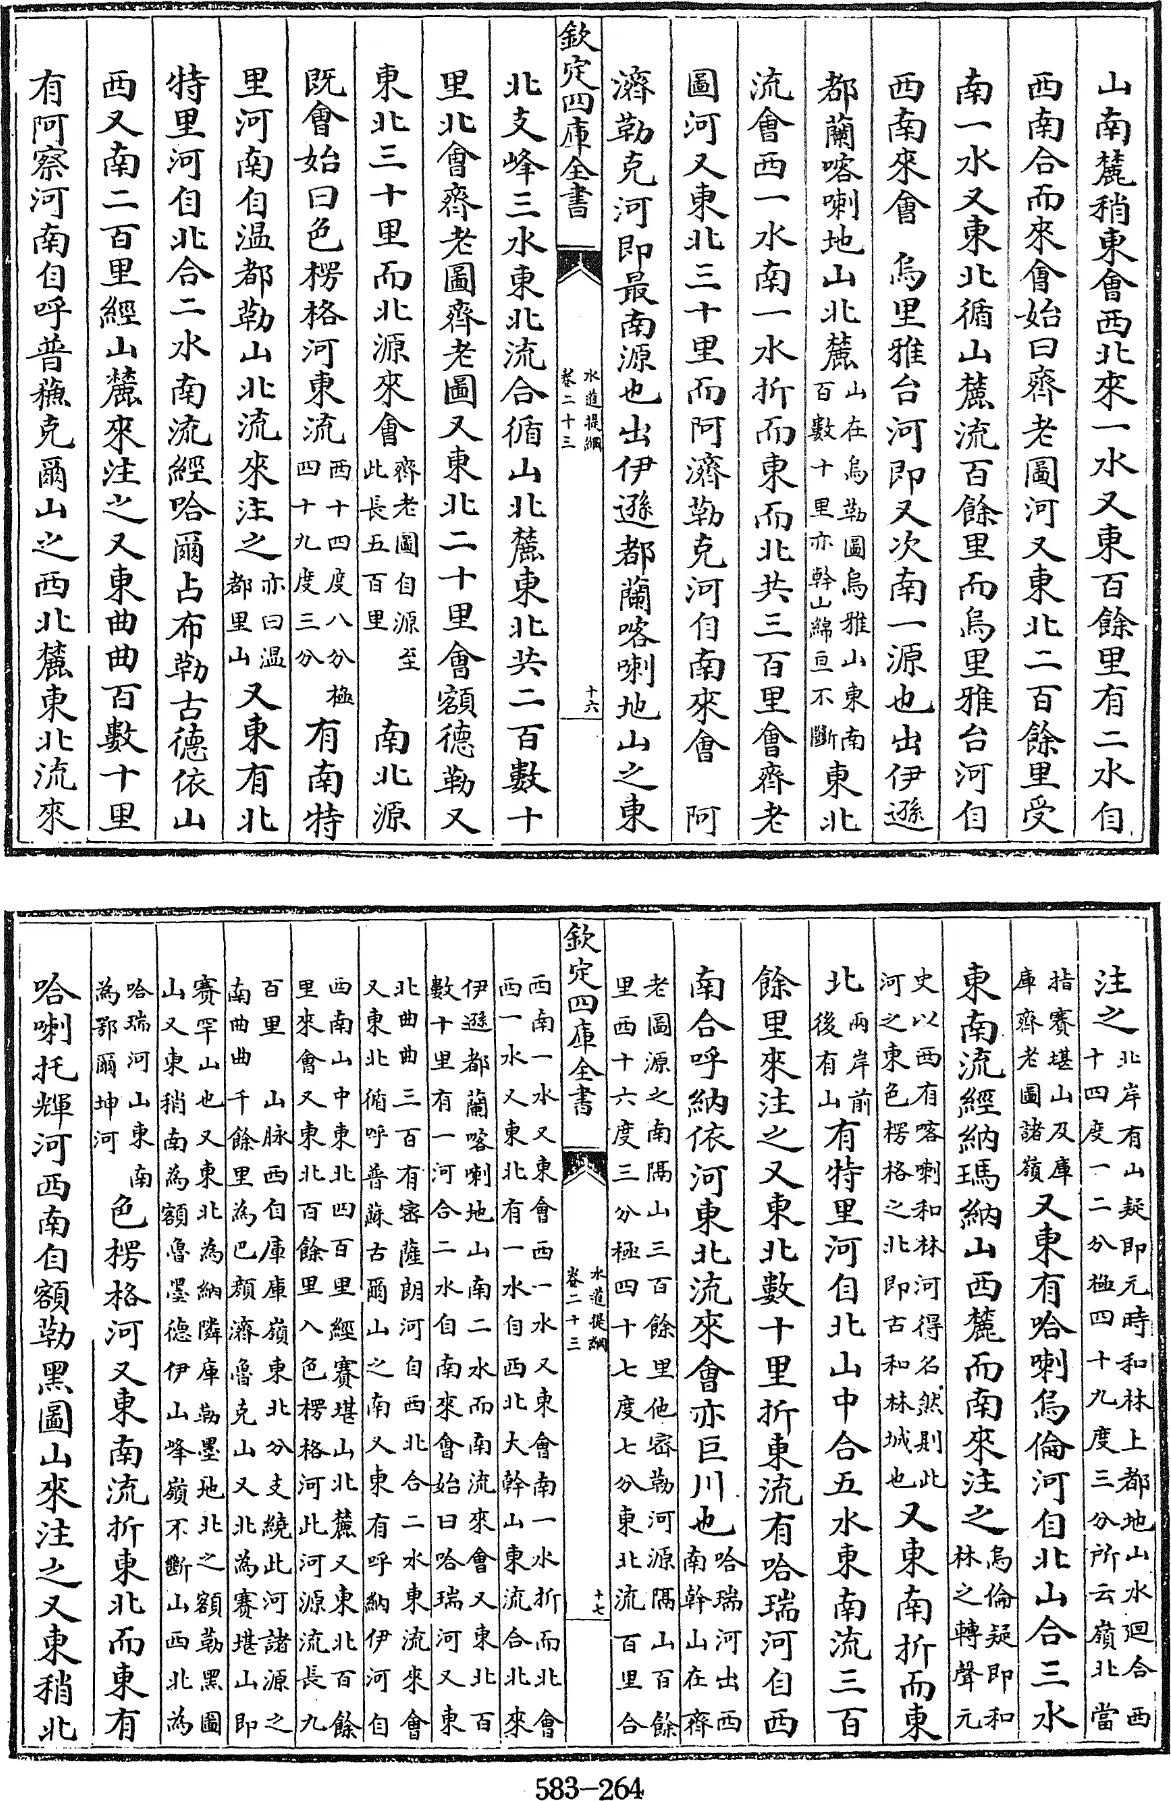 山南麓稍東會西北來一水又東百餘里有二水自
西南合而來會始曰齊老圖河又東北二百餘里受
南一水又東北循山麓流百餘里而烏里雅台河自
西南來會　烏里雅台河即又次南一源也出伊遜
都蘭喀喇地山北麓山在烏勒圖烏雅山東南百數十里亦幹山綿亘不斷東北
流會西一水南一水折而東而北共三百里會齊老
圖河又東北三十里而阿濟勒克河自南來會　阿
濟勒克河即最南源也出伊遜都蘭喀喇地山之東
欽定四庫全書　水道提綱卷二十三　十六
北支峰三水東北流合循山北麓東北共二百數十
里北會齊老圖齊老圖又東北二十里會額德勒又
東北三十里而北源來會齊老圖自源至此長五百里　南北源
既會始曰色楞格河東流西十四度八分極四十九度三分有南特
里河南自溫都勒山北流來注之亦曰溫都里山又東有北
特里河自北合二水南流經哈爾占布勒古德依山
西又南二百里經山麓來注之又東曲曲百數十里
有阿察河南自呼普穌克爾山之西北麓東北流來
注之北岸有山疑即元時和林上都地山水廻合西十四度一二分極四十九度三分所云嶺北當
指賽堪山及庫庫齊老圖諸嶺又東有哈喇烏倫河自北山合三水
東南流經納瑪納山西麓而南來注之烏倫疑即和林之轉聲元
史以西有喀喇和林河得名然則此河之東色楞格之北即古和林城也又東南折而東
北兩岸前後有山有特里河自北山中合五水東南流三百
餘里來注之又東北數十里折東流有哈瑞河自西
南合呼納依河東北流來會亦巨川也哈瑞河出西南幹山在齊
老圖源之南隔山三百餘里他密勒河源隔山百餘里西十六度三分極四十七度七分東北流百里合
欽定四庫全書　水道提綱卷二十三　十七
西南一水又東會西一水又東會南一水折而北會西一水又東北有一水自西北大幹山東流合北來
伊遜都蘭喀喇地山南二水而南流來會又東北百數十里有一河合二水自南來會始曰哈瑞河又東
北曲曲三百有密薩朗河自西北合二水東流來會又東北循呼普蘇古爾山之南又東有呼納伊河自
西南山中東北四百里經賽堪山北麓又東北百餘里來會又東北百餘里入色楞格河此河源流長九
百里　山脉西自庫庫嶺東北分支繞此河諸源之南曲曲千餘里為巴顏濟魯克山又北為賽堪山即
賽罕山也又東北為納隣庫勒墨地北之額勒黑圖山又東稍南為額魯墨德伊山峰嶺不斷山西北為
哈瑞河山東南為鄂爾坤河色楞格河又東南流折東北而東有
哈喇托輝河西南自額勒黑圖山來注之又東稍北
583-264